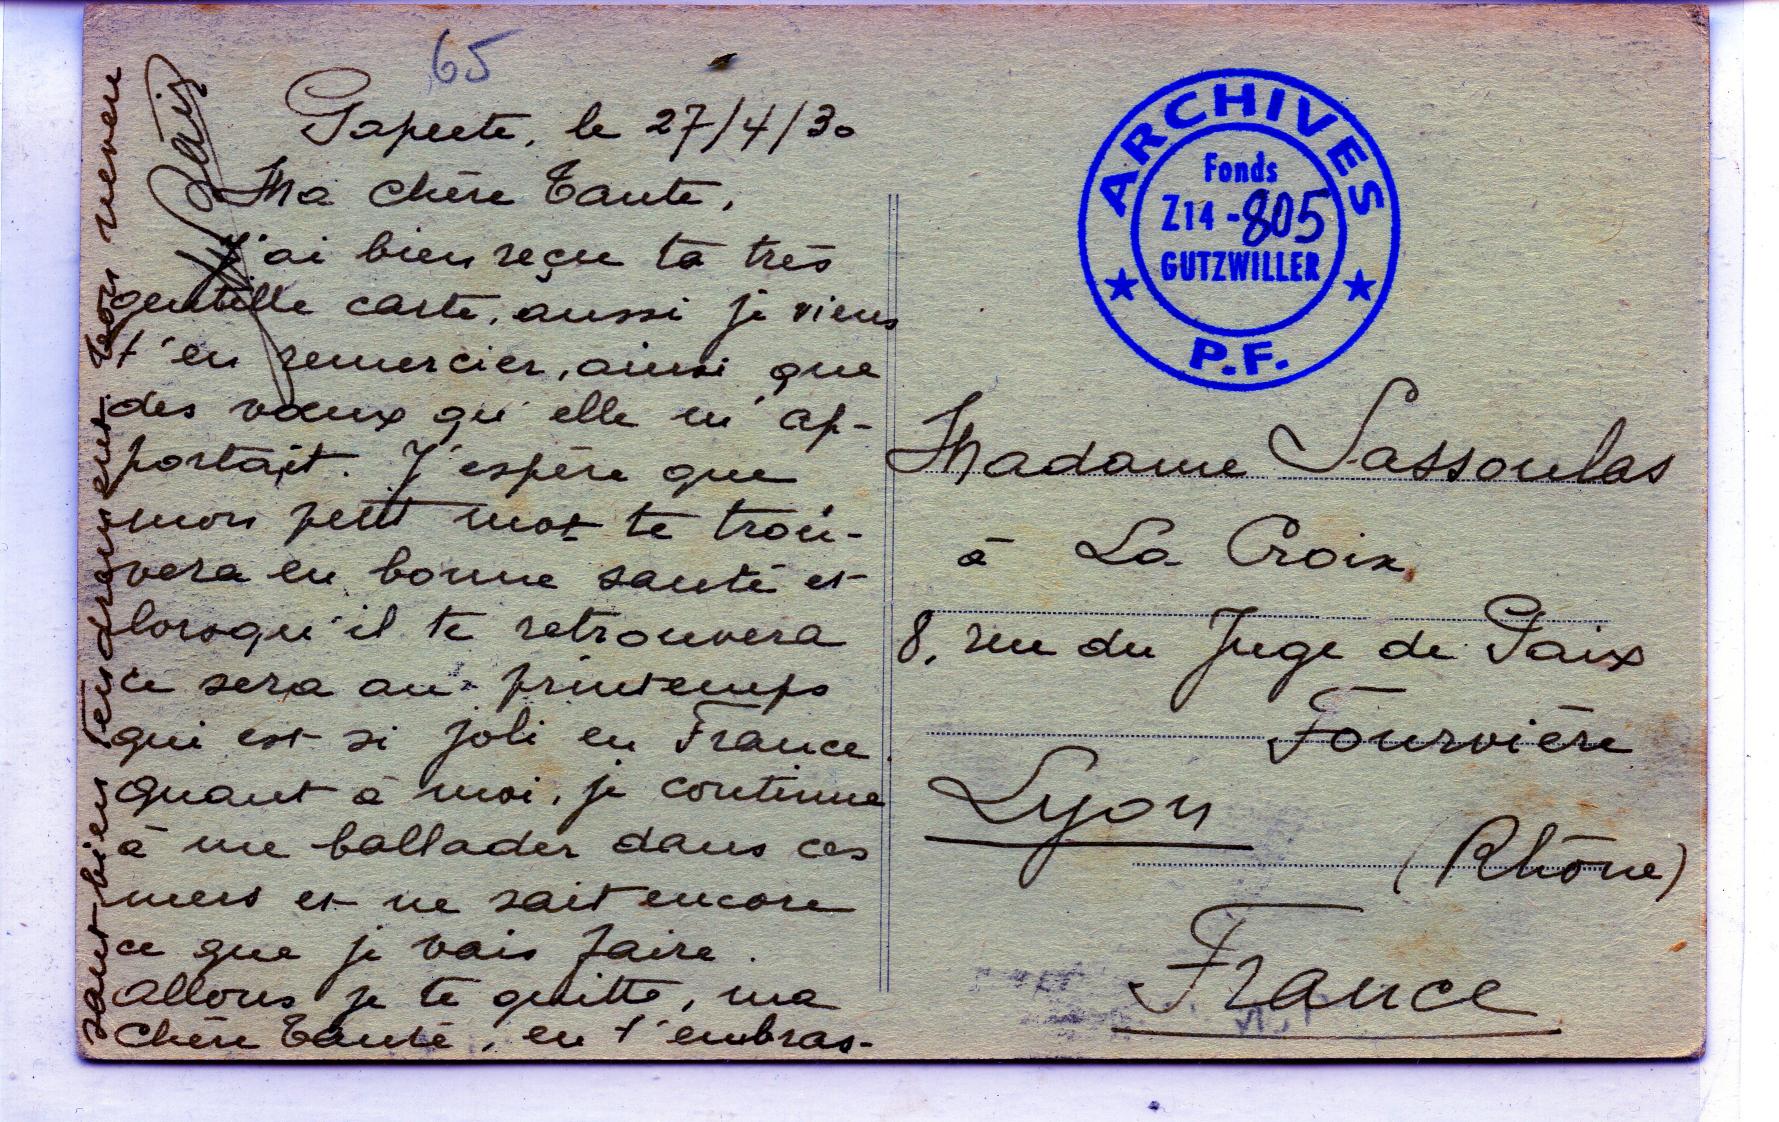 65
Papeete, le 27/4/30
Ma chère Tante,
J'ai bien reçu ta très
gentille carte, aussi je viens
t'en remercier, ainsi que
des vœux qu'elle m'ap-
portait. J'espère que
mon petit mot te trou-
vera en bonne santé et
lorsqu'il te retrouvera
ce sera au printemps
qui est si joli en France.
Quant à moi, je continue
à me ballader dans ces
mers et ne sait encore
ce que je vais faire.
Allons je te quitte, ma
chère Tante, en t'embras-
sant bien tendrement. Ton neveu
ARCHIVES
Fonds
Z14-805
GUTZWILLER
P.F.
Madame Sassoulas
à La Croix
8, rue du Juge de Paix
Fourvière
Lyon
(Rhône)
France